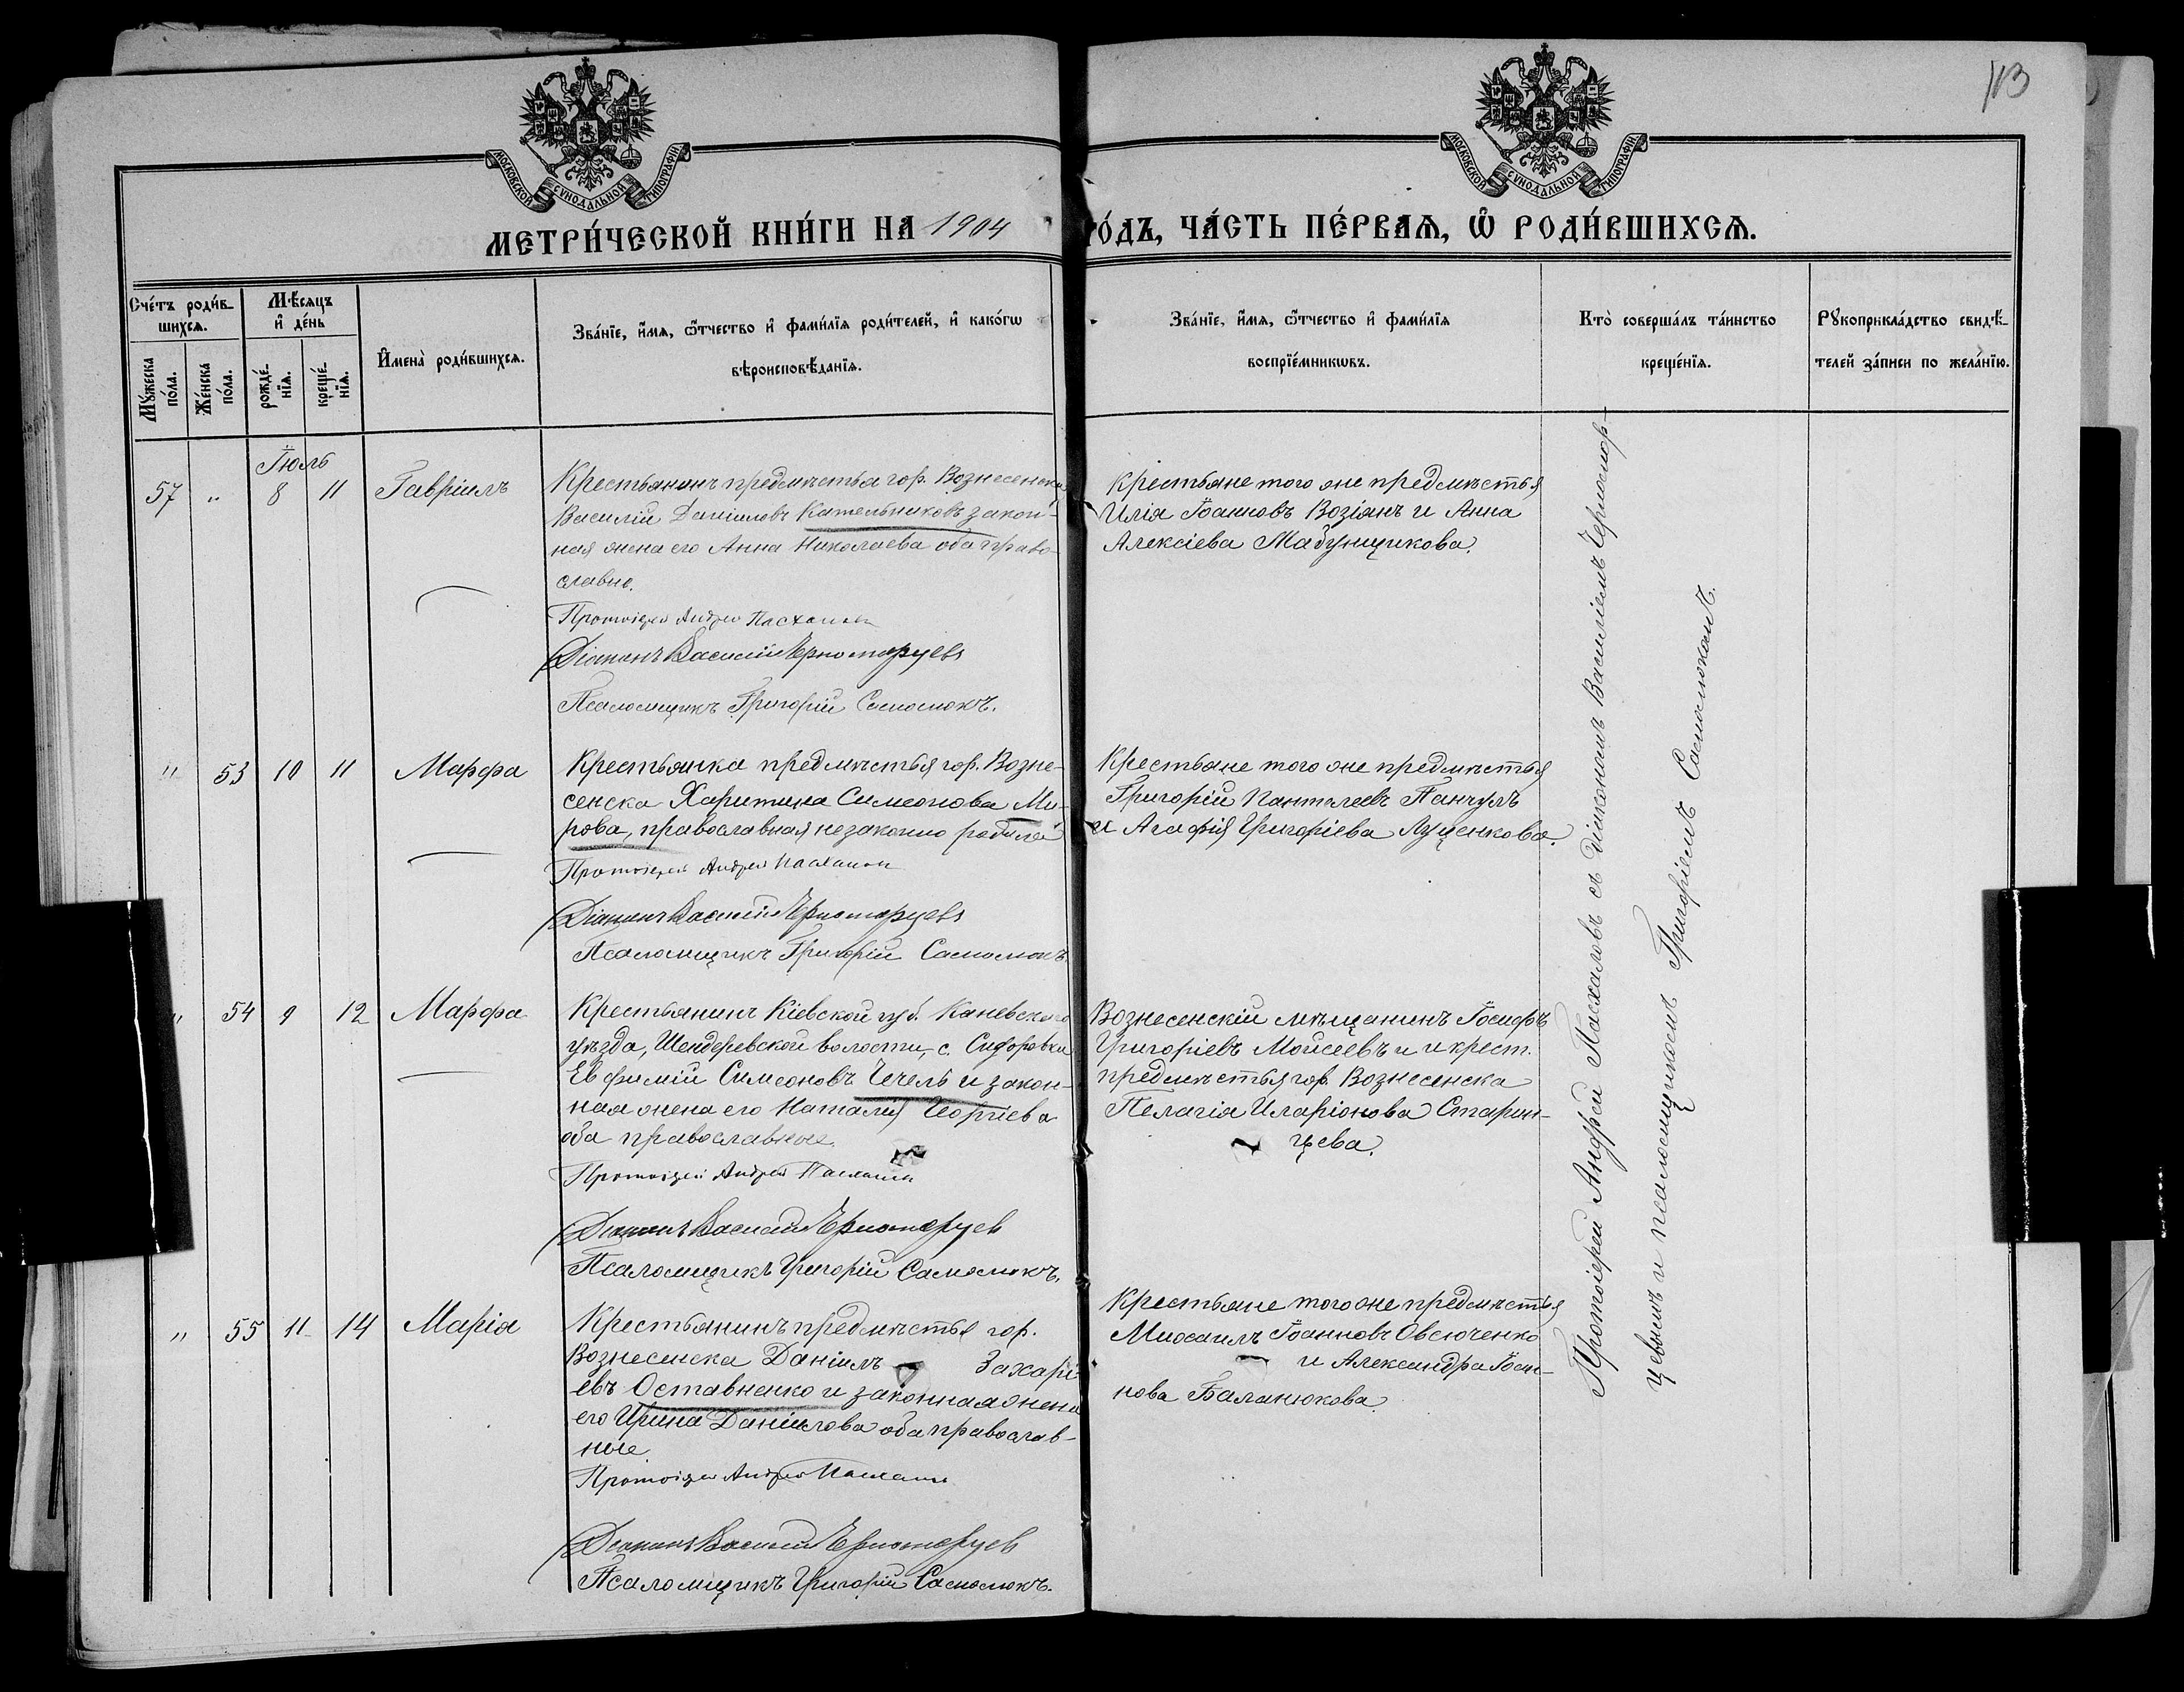 113
МОСКОВСКОЙ СѴНОДАЛЬНОЙ ТИПОГРАФІИ
МОСКОВСКОЙ СѴНОДАЛЬНОЙ ТИПОГРАФІИ
МЕТРИ́ЧЕСКОЙ КНИ́ГИ НА 1904 ГО́ДЪ, ЧА́СТЬ ПЕ́РВАѦ, Ѽ РОДИ́ВШИХСѦ.
Сче́тъ роди́в-
шихсѧ.
Мꙋ́жеска по́ла.
Же́нска по́ла.
Мѣ́сяцъ
и҆ де́нь
рожде́-
нїѧ.
креще́-
нїѧ.
И҆мена̀ роди́вшихсѧ.
Зва́нїе, и҆́мѧ, ѻ҆́тчество и҆ фами́лїѧ роди́телей, и҆ како́гѡ
вѣроисповѣ́данїѧ.
Зва́нїе, и҆́мѧ, ѻ҆́тчество и҆ фами́лїѧ
воспрїе́мникѡвъ.
Кто̀ соверша́лъ та́инство
креще́нїѧ.
Рꙋкоприкла́дство свидѣ́-
телей за́писи по жела́нїю.
Іюль
57 " 8 11 Гавріилъ
Крестьянинъ предмѣстья гор. Вознесенска
Василій Даніиловъ Котельниковъ закон-
ная жена его Анна Николаева оба право-
славне.
Протоіерей Андрей Пасхаловъ
Діаконъ Василій Черноморцевъ
Псаломщикъ Григорій Самолюкъ.
Крестьяне того же предмѣстья
Илія Іоанновъ Возіянъ и Анна
Алексіева Мабунщикова.
" 53 10 11 Марфа
Крестьянка предмѣстья гор. Возне-
сенска Харитина Симеонова Ми-
рова, православная незаконно родила
Протоіерей Андрей Пасхаловъ
Діаконъ Василій Черноморцевъ
Псаломщикъ Григорій Самолюкъ.
Крестьяне того же предмѣстья
Григорій Пантелеевъ Панчулъ
и Агафія Григоріева Луценкова.
" 54 9 12 Марфа
Крестьянинъ Кіевской губ. Каневскаго
уѣзда, Шендеревской волости, с. Сидоровки
Евфимій Симеоновъ Чечель и закон-
ная жена его Наталія Георгіева
оба православные.
Протоіерей Андрей Пасхаловъ
Діаконъ Василій Черноморцевъ
Псаломщикъ Григорій Самолюкъ.
Вознесенскій мѣщанинъ Іосифъ
Григоріевъ Мойсеевъ и и крест.
предмѣстья гор. Вознесенска
Пелагія Иларіонова Старин-
цева.
" 55 11 14 Марія
Крестьянинъ предмѣстья гор.
Вознесенска Даніилъ Захарі-
евъ Оставненко и законная жена
его Ирина Даніилова оба православ-
ные.
Протоіерей Андрей Пасхаловъ
Діаконъ Василій Черноморцевъ
Псаломщикъ Григорій Самолюкъ.
Крестьяне того же предмѣстья
Михаилъ Іоанновъ Овсюченко
и Александра Іоан-
нова Баланюкова.
Протоіерей Андрей Пасхаловъ съ діакономъ Василіемъ Черномор-
цевымъ и псаломщикомъ Григоріемъ Самолюкомъ.